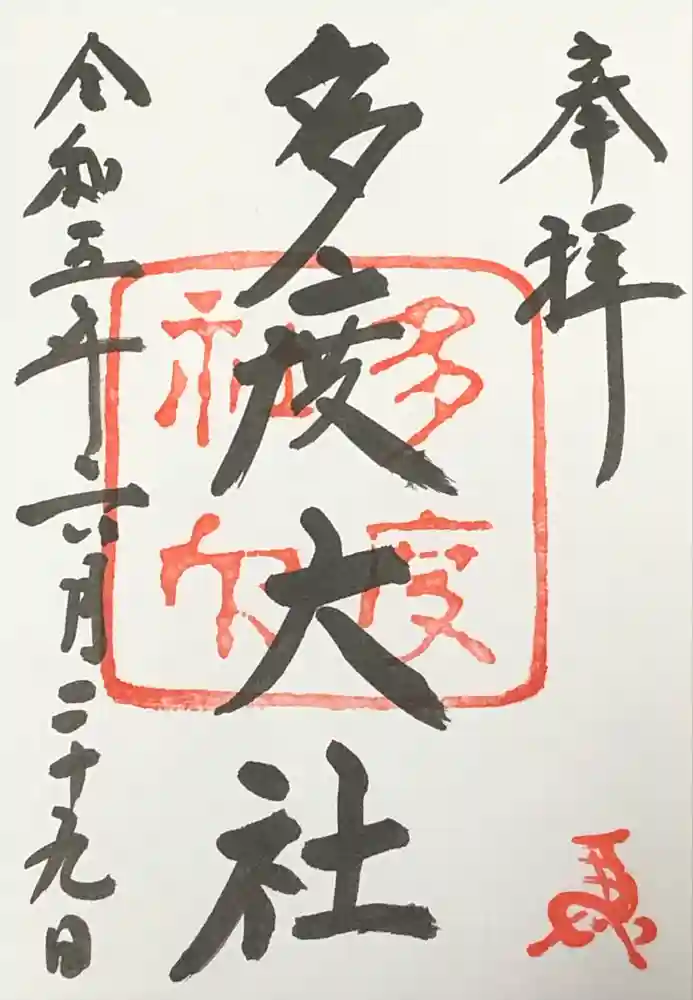 奉拝
多度大社
令和五年六月二十九日
多度
神印